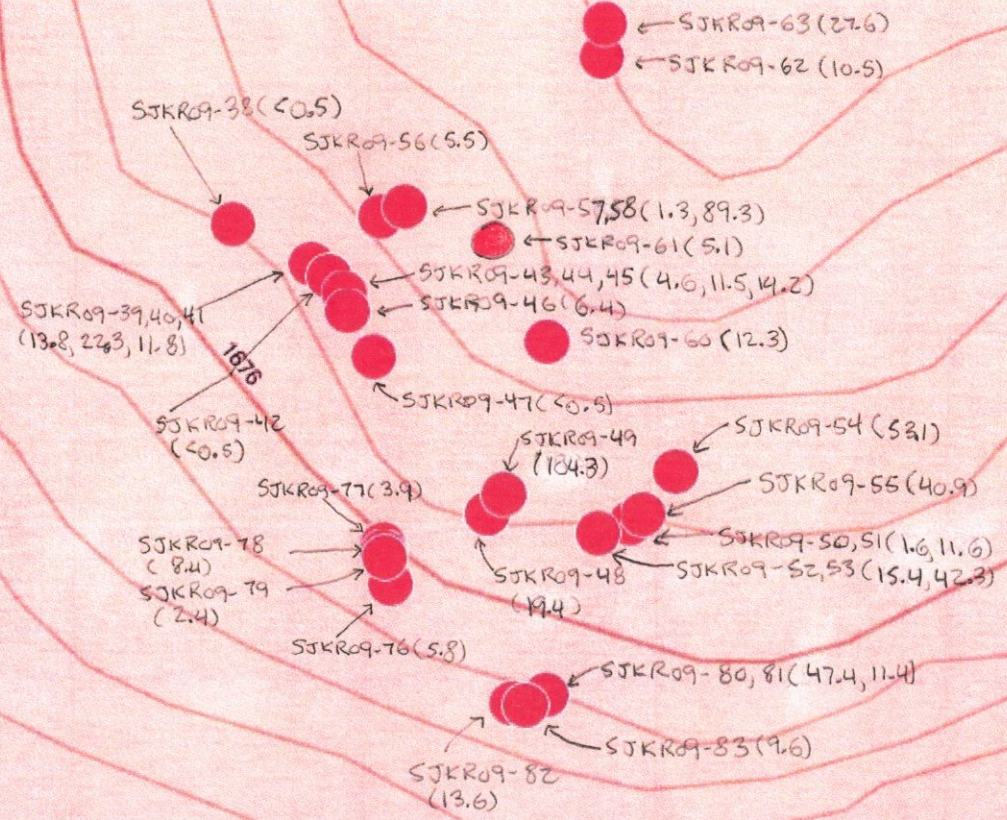 SJKR09-63(27.6)
SJKR09-62 (10.5)
SJKR09-38(<0.5)
SJKR09-56(5.5)
SJKR09-57,58(1.3, 89.3)
SJKR09-61(5.1)
SJKR09-43,44,45(4.6, 11.5, 14.2)
SJKR09-46(6.4)
SJKR09-39,40,41
(13.8, 22.3, 11.8)
SJKR09-60 (12.3)
1676
SJKR09-47(<0.5)
SJKR09-42
(<0.5)
SJKR09-54 (53.1)
SJKR09-49
(184.3)
SJKR09-55(40.9)
SJKR09-77(3.9)
SJKR09-50,51(1.6, 11.6)
SJKR09-78
(8.4)
SJKR09-52,53(15.4, 42.3)
SJKR09-48
(19.4)
SJKR09-79
(2.4)
SJKR09-76(5.8)
SJKR09-80,81(47.4, 11.4)
SJKR09-83(9.6)
SJKR09-82
(13.6)